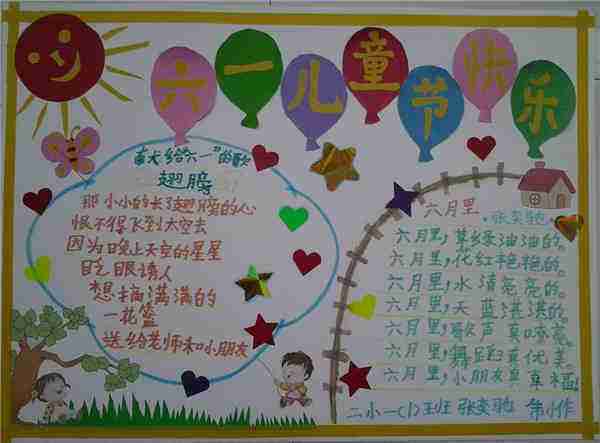 六一儿童节快乐
献给六一的歌
翅膀
那小小的长了翅膀的心
恨不得飞到太空去
因为晚上天空的星星
眨眼请人
想摘满满的
一花篮
送给老师和小朋友
六月里
张奕驰
六月里,草绿油油的。
六月里,花红艳艳的。
六月里,水清亮亮的。
六月里,天蓝湛湛的。
六月里,歌声真嘹亮。
六月里,舞蹈真优美。
六月里,小朋友真幸福!
二小一(1)班 张奕驰 制作